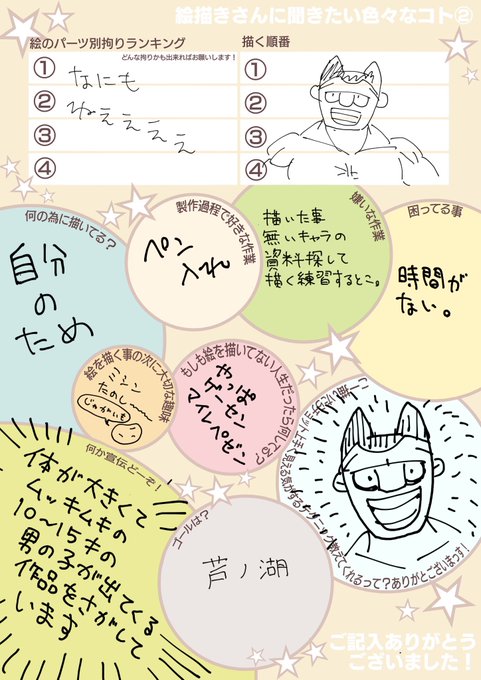 絵描きさんに聞きたい色々なコト②
絵のパーツ別拘りランキング
どんな拘りかも出来ればお願いします！
①
②
③
④
なにも
ねぇぇぇぇ
描く順番
①
②
③
④
何の為に描いてる？
自分
の
ため
製作過程で好きな作業
ペン
入れ
嫌いな作業
描いた事
無いキャラの
資料探して
描く練習するとこ。
困ってる事
時間が
ない。
絵を描く事の次に大切な趣味
ミシン
たのしー
じゃがいも
もしも絵を描いてない人生だったら何してる？
やっぱ
ゲーセン
マイレペゼン
教えてくれるって？ありがとございまっす！
何か宣伝どーぞ！
体が大きくて
ムッキムキの
10～15才の
男の子が出てくる
作品をさがして
います
ゴールは？
芦ノ湖
ご記入ありがとう
ございました！